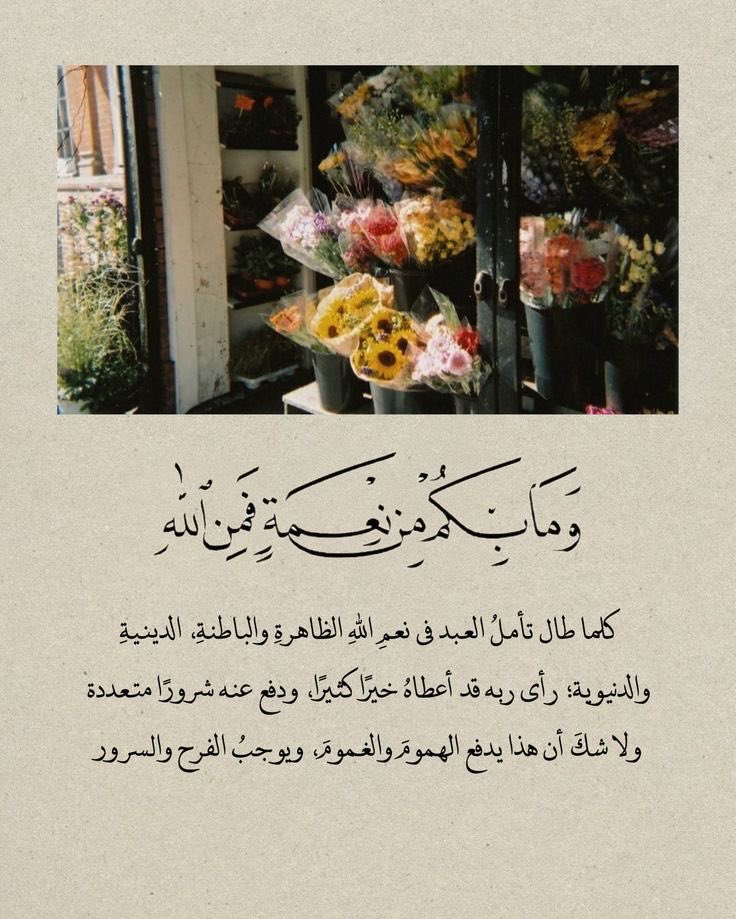 وَمَا بِكُم مِّن نِّعْمَةٍ فَمِنَ ٱللَّهِ
كلما طال تأملُ العبد في نعمِ اللهِ الظاهرةِ والباطنةِ، الدينيةِ
والدنيوية؛ رأى ربه قد أعطاهُ خيرًا كثيرًا، ودفع عنه شرورًا متعددة
ولا شكَ أن هذا يدفع الهمومَ والغمومَ، ويوجبُ الفرح والسرور